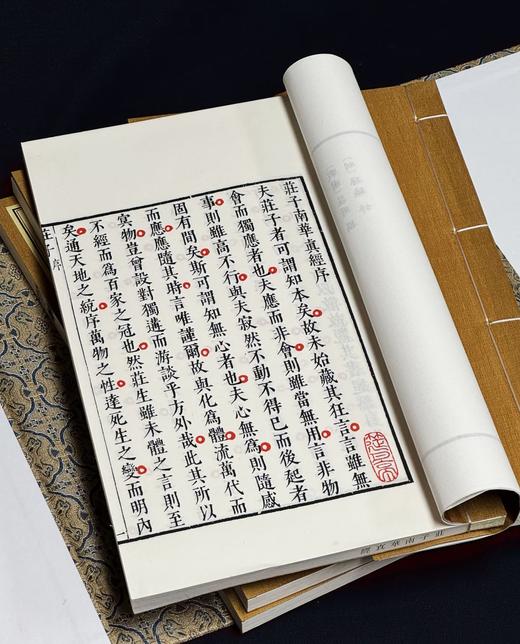 莊子南華真經序
夫莊子者可謂知本矣故未始藏其狂言言雖無
會而獨應者也夫應而非會則雖當無用言非物
事則雖高不行與夫寂然不動不得已而後起者
固有間矣斯可謂知無心者也夫心無為則隨感
而應應隨其時言唯謹爾故與化為體流萬代而
冥物豈曾設對獨遘而游談乎方外哉此其所以
不經而為百家之冠也然莊生雖未體之言則至
矣通天地之統序萬物之性達死生之變而明內
莊子序
一
莊子南華真經